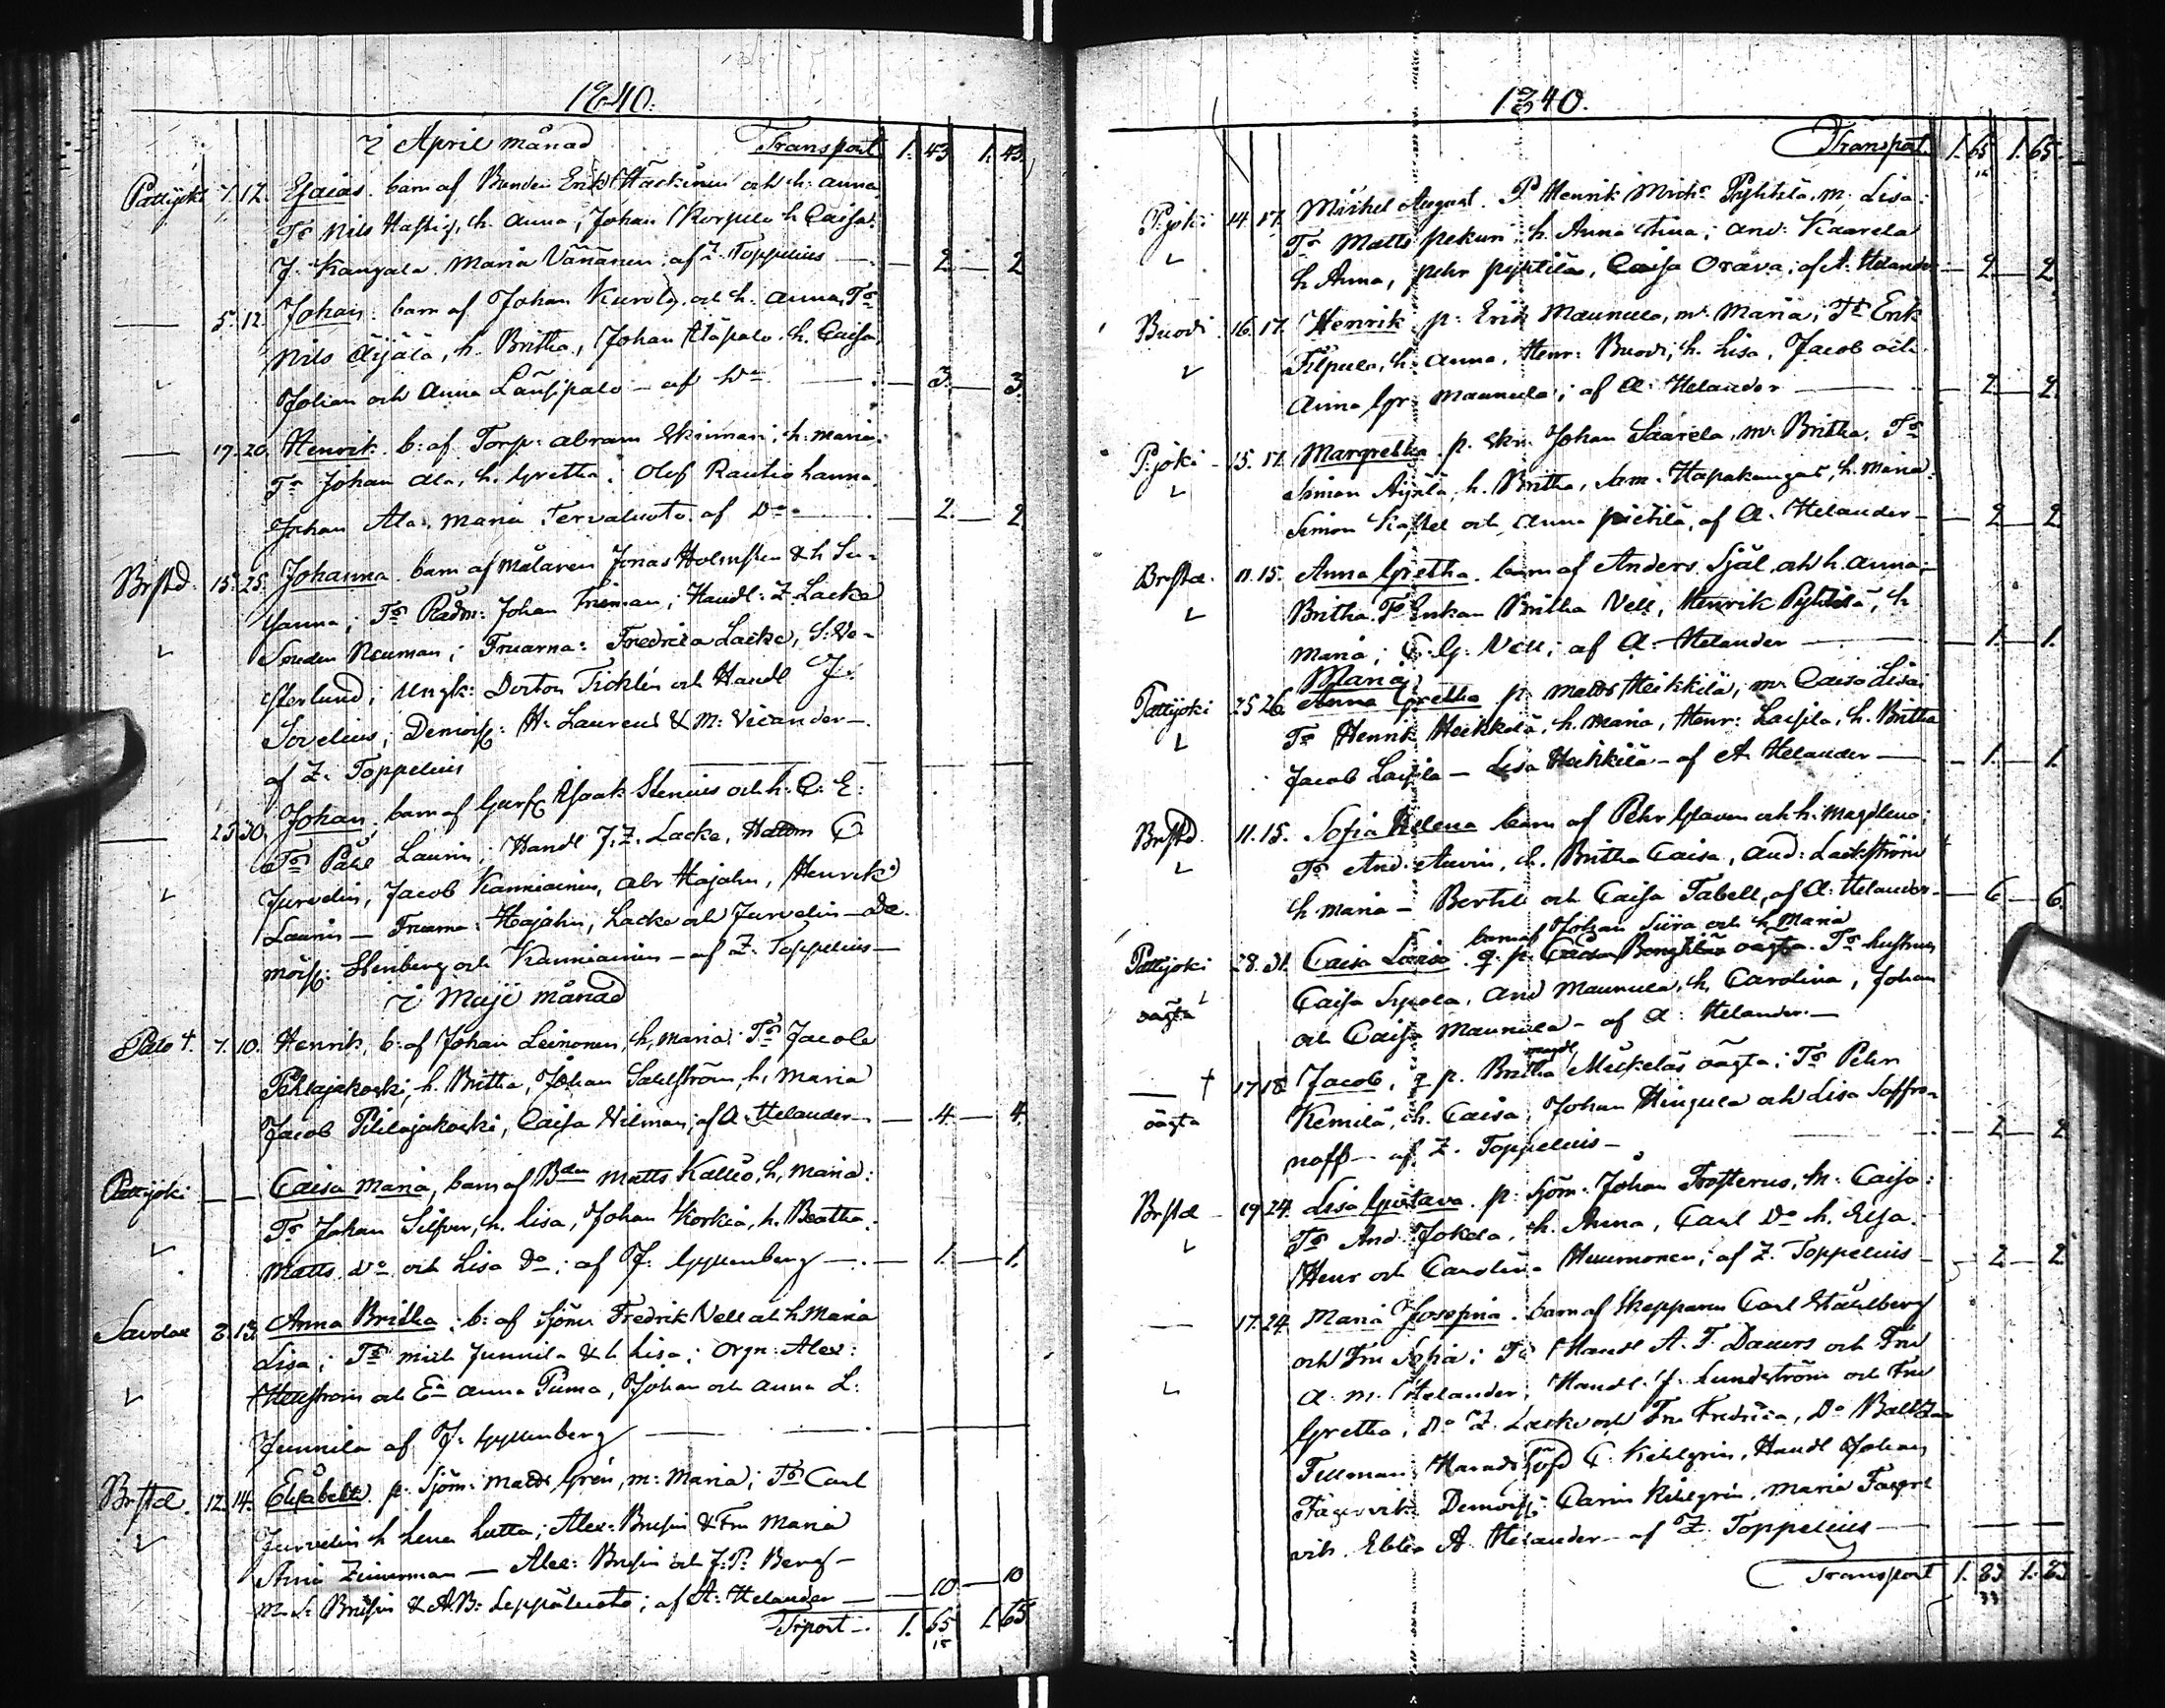 1840.
i April månad Transport 1. 43 1. 43.
Pattijoki 7. 12. Esaias. barn af Bonden Erik Häckinen och h: Anna
Tr Nils Hastig, h. Anna, Johan Korpela h Caisa.
J. Kangala. Maria Vänänen. af Z. Toppelius — 2 — 2
— 5. 12. Johan: barn af Johan och h: Anna, Tr
Nils Äijälä, h. Britha, Johan Alapalo. h. Caisa.
Johan och Anna — af Do — 3 — 3.
— 17. 20. Henrik. b: af Torp: Abram h: Maria.
Tr Johan Ala, h. Gretha. Olof Rautio h anna.
Johan Ala. Maria Tervaluoto. af Do — 2. — 2
Brstd. 15. 25. Johanna. barn af Målaren Jonas Holmsten & h Su-
sanna; Tr Rådm: Johan Frieman; Handl: Z. Lacke
Neuman; Fruarna: Fredrica Lacke, S:
sterlund; Ungk: Docton Ticklén och Handl J.
Sovelius; Demois: H: Laurens & M: Vicander —
af Z. Toppelius
— 25 30. Johan, barn af Garf Isaak Stenius och h. C: E:
Tr Påhl Laurin; Handl J. Z. Lacke, C
Jurvelin, Jacob Kanniainen, abr Hajahn, Henrik
Laurin — Fruarna: Hajahn, Lacke och Jurvelin — De
mois: Stenberg och Kanniainen — af Z. Toppelius —
i Maji månad
Palo 4. 7. 10. Henrik, b: af Johan Leinonen, h, Maria. Tr Jacob
Pihlajakoski, h. Britha, Johan Sahlström, h, Maria
Jacob Pihlajakoski, Caisa Nilman, af A. Helander — 4. — 4.
Pattijoki — — Caisa Maria, barn af Bden Matts Kallio, h, Maria:
Tr Johan Silfver, h. Lisa, Johan Korkia, h. Beatha.
Matts Do och Lisa Do; af J. Gyllenberg — 1. — 1.
Savolax 8. 13. Anna Britha; b: af Sjöm Fredrik Nell och h Maria
Lisa; Tr Mich Junnila & h Lisa; Orgn: Alex:
Hellström och Ea Anna Puma, Johan och Anna L:
Junnila af J. Gyllenberg
Brstd. 12. 14. Elisabeth. p. Sjöm: Matts Grén, m: Maria; Tr Carl
Jurvelin h Lena Lotta; Alex: Brusin & Fru Maria
Zimmerman — Alex: Brusin och J. P. Berg —
M. S. Brusin & A. B: Leppäluoto; af A. Helander — 10 — 10
Trport — 1. 65 1. 65
1840.
Transport 1. 65 1. 65.
P.joki 14. 17. Michel August. P Henrik Michs Pyhtilä. M. Lisa.
Tr Matts Pekuri h. Anna Stina; And: Kaarela
h Anna, Pehr Pyhtilä, Caisa Orava; af A. Helander — 2 — 2
Buovi 16. 17. Henrik p: Erik Maunula, m: Maria; Tr Erik
Filpula, h. Anna. Henr: Buovi, h. Lisa, Jacob och
Anna Gr: Maunula; af A: Helander — 2 — 2.
P.joki — 15. 17. Margretha. p. Skr: Johan Saarela, m: Britha, Tr
Simon Äijälä, h. Britha, Sam. Hapakangas, h. Maria.
Simon Kastel och Anna Pietilä, af A. Helander — 2 — 2
Brstd. 11. 15. Anna Gretha. barn af Anders Själ och h. Anna
Britha. Tr Enkan Britha Nell, Henrik Pyhtilä, h
Maria; C. G. Nell; af A. Helander — 1. — 1.
Maria
Pattijoki 25 26. Anna Gretha p: Matts Heikkilä, m: Caisa Lisa;
Tr Henrik Heikkilä, h. Maria, Henr: Laisila, h. Britha
Jacob Laisila — Lisa Heikkilä — af A Helander — 1. — 1.
Brstd. 11. 15. Sofia Helena barn af Pehr och h: Magdlena;
Tr And: h. Britha Caisa, And: Lackström
h Maria — Bertil och Caisa Tabell, af A: Helander — 6 — 6.
barn af Johan Siira och h Maria
Pattijoki 28. 31. Caisa Lovisa. q. p. oägta. Tr
oägta Caisa Sipola, And Maunula, h, Carolina, Johan
och Caisa Maunula — af A: Helander. —
— † 17 18. Jacob, q p. Britha Mickelä oägta; Tr Pehr
oägta Kemilä, h. Caisa; Johan Hingula och Lisa Saffro-
noff — af Z. Toppelius — 2 — 2
Brstd — 19 24. Lisa Gustava. p: Sjöm: Johan Frosterus, M: Caisa:
Tr And. Jokela, h. Anna, Carl Do h. Elsa.
Henr och Carolina Huumonen; af Z. Toppelius — 2 — 2
— 17. 24. Maria Josefina. barn af Skepparen Carl Ståhlberg
och Fru Sofia; Tr Handl A. F. Dauers och Fru
A. M. Helander, Handl. J. Lundström och Fru
Gretha, Do Z. Lacke och Fru Fredrica, Do Baltzar
Fellman, Haradshöfd C. Kihlgrén, Handl Johan
Fagervik. Demois: Carin Kihlgrén, Maria Fager
vik. Ebba A Helander — af Z. Toppelius —
Transport 1. 83 1. 83